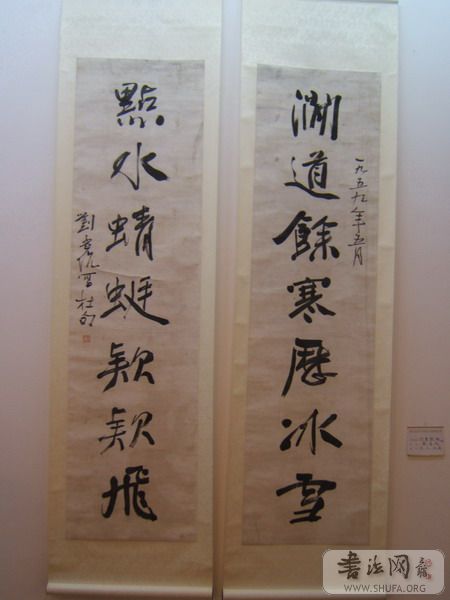 澗道餘寒歷冰雪
一九五九年五月
點水蜻蜓款款飛
書法网
WWW.SHUFA.ORG